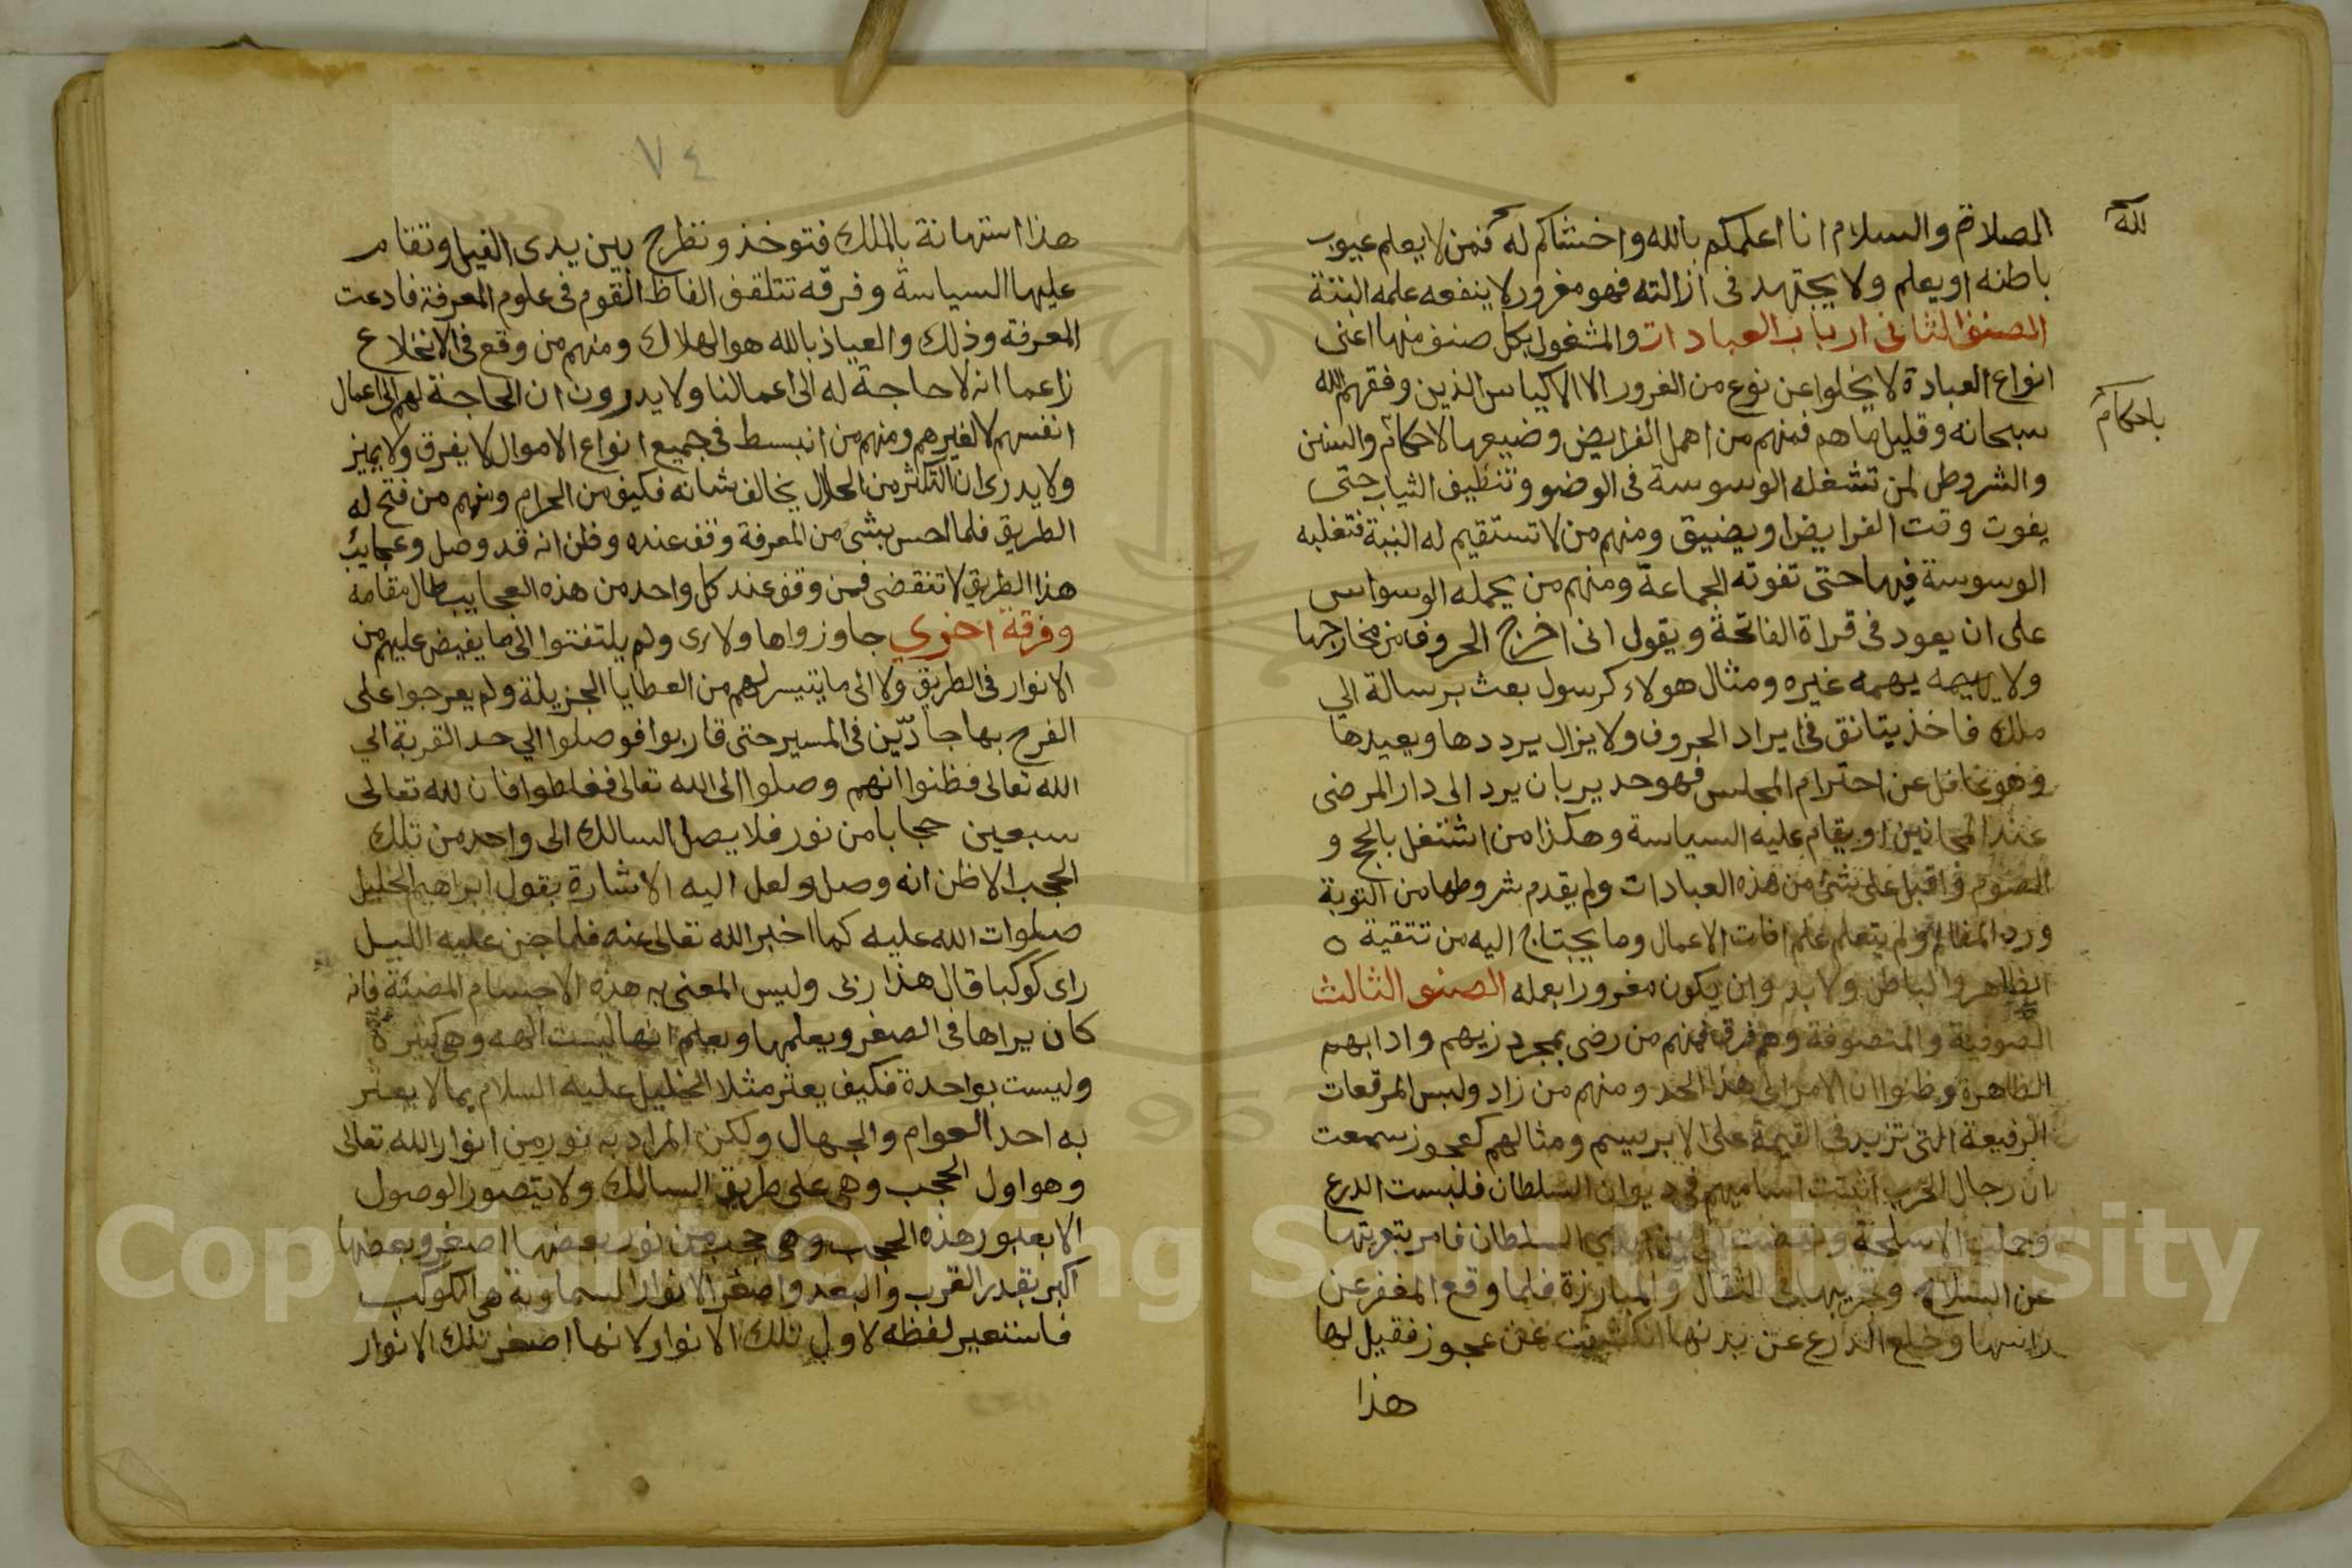 الصلاة والسلام انا اعلمكم بالله واخشاكم له فمن لا يعلم عيوب
لله
باطنه او يعلم ولا يجتهد فى ازالته فهو مغرور لا ينفعه علمه البتة
الصنف الثانى ارباب العبادات والمشغول بكل صنف منها اعنى
انواع العبادة لا يخلوا عن نوع من الغرور الا الاكياس الذين وفقهم الله
سبحانه وقليل ما هم فمنهم من اهمل الفرايض وضيعها لاحكام والسنن
باحكام
والشروط لمن تشغله الوسوسة فى الوضو وتنظيف الثياب حتى
يفوت وقت الفرايض او يضيق ومنهم من لا تستقيم له النية فتغلبه
الوسوسة فيها حتى تفوته الجماعة ومنهم من يحمله الوسواس
على ان يعود فى قراة الفاتحة ويقول انى اخرج الحروف من مخارجها
ولا يهمه غيره ومثال هولاء كرسول بعث برسالة الي
ملك فاخذ يتانق فى ايراد الحروف ولا يزال يرددها ويعيدها
وهو غافل عن احترام المجلس فهو جدير بان يرد الى دار المرضى
عند المجانين او يقام عليه السياسة وهكذا من اشتغل بالحج و
الصوم واقبل على شئ من هذه العبادات ولم يقدم شروطها من التوبة
ورد المظالم ولم يتعلم علم افات الاعمال وما يحتاج اليه من تنقية
الظاهر والباطن ولا بد وان يكون مغرورا بعمله الصنف الثالث
الصوفية والمتصوفة وهم فرق فمنهم من رضى بمجرد زيهم وادابهم
الظاهرة وظنوا ان الامر الى هذا الحد ومنهم من زاد ولبس المرقعات
الرفيعة التى تزيد فى القيمة على الابريسم ومثالهم كعجوز سمعت
ان رجال الحرب اثبتت اساميهم فى ديوان السلطان فلبست الدرع
وحملت الاسلحة السلطان فامر بتعريتها
عن السلاح وتجريبها فى القتال والمبارزة فلما وقع المغفر عن
راسها وخلع الدرع عن بدنها انكشفت عن عجوز فقيل لها
هذا
٧٤
هذا استهانة بالملك فتوخذ وتطرح بين يدى الفيل وتقام
عليها السياسة وفرقه تتلقف الفاظ القوم فى علوم المعرفة فادعت
المعرفة وذلك والعياذ بالله هو الهلاك ومنهم من وقع فى الانخلاع
زاعما انه لا حاجة له الى اعمالنا ولا يدرون ان الحاجة لهم الى اعمال
انفسهم لا لغيرهم ومنهم من انبسط فى جميع انواع الاموال لا يفرق ولا يميز
ولا يدرى ان التكثر من الحلال يخالف شانه فكيف من الحرام ومنهم من فتح له
الطريق فلما احس بشى من المعرفة وقف عنده وظن انه قد وصل وعجايب
هذا الطريق لا تنقضى فمن وقف عند كل واحد من هذه العجايب طال مقامه
وفرقة اخري جاوزوا ها ولاى ولم يلتفتوا الى ما يفيض عليهم من
الانوار فى الطريق ولا الى ما يتيسر لهم من العطايا الجزيلة ولم يعرجوا على
الفرح بها جادّين فى المسير حتى قاربوا فوصلوا الي حد القربة الي
الله تعالى فظنوا انهم وصلوا الى الله تعالى فغلطوا فان لله تعالى
سبعين حجابا من نور فلا يصل السالك الى واحد من تلك
الحجب الا ظن انه وصل ولعل اليه الاشارة بقول ابراهيم الخليل
صلوات الله عليه كما اخبر الله تعالى عنه فلما جن عليه الليل
راى كوكبا قال هذا ربى وليس المعنى به هذه الاجسام المضيئة فانه
كان يراها فى الصغر ويعلمها ويعلم انها ليست الهه وهى كثيرة
وليست بواحدة فكيف يعثر مثلا الخليل عليه السلام بما لا يعثر
به احد العوام والجهال ولكن المراد به نور من انوار الله تعالى
وهو اول الحجب وهى على طريق السالك ولا يتصور الوصول
الا بعبور هذه الحجب وهى حجب من نور بعضها اصغر وبعضها
اكبر بقدر القرب والبعد واصغر الانوار السماوية هى الكوكب
فاستعير لفظه لاول تلك الانوار لانها اصغر تلك الانوار
Copyright © King Saud University